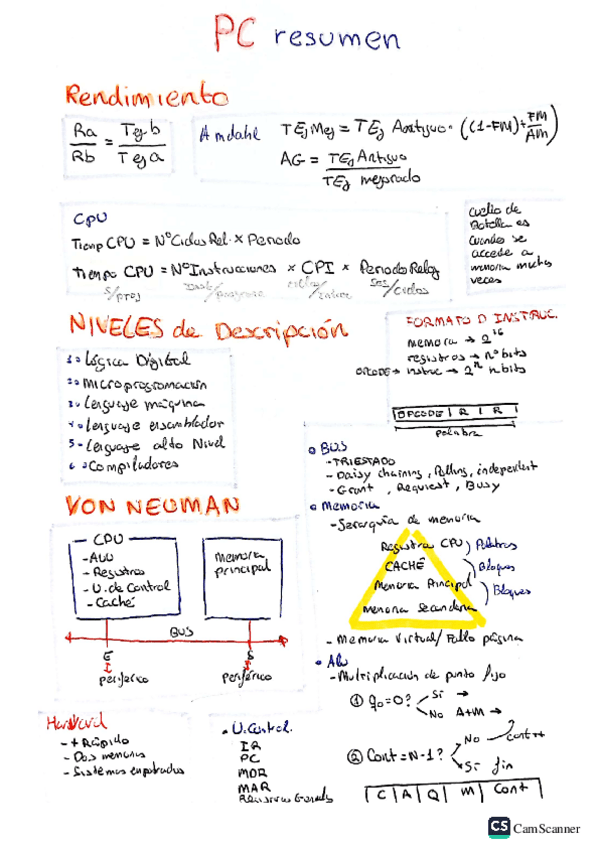 PC resumen
Rendimiento
Ra/Rb = Tej b/Tej a
Amdahl TEj Mej = TEj Antiguo · ((1-FM)+FM/AM)
AG = TEj Antiguo/TEj mejorado
CPU
Tiemp CPU = NºCiclos Rel. x Periodo
Tiempo CPU = NºInstrucciones x CPI x Periodo Reloj
S/prog
Inst/programa
ciclos/instrc
seg/ciclos
cuello de
Botella es
cuando se
accede a
memoria muchas
veces
NIVELES de Descripción
1º Lógica Digital
2º microprogramación
3º Lenguaje máquina
4º Lenguaje ensamblador
5 - Lenguaje alto Nivel
6º Compiladores
FORMATO D INSTRUC.
memoria → 2^16
registros → nº bits
OPCODE → instruc → 2^n n bits
OPCODE | R | R |
palabra
BUS
- TRIESTADO
- Daisy chaining, Polling, independent
- Grant, Request, Busy
Memoria
- Jerarquía de memoria
Registros CPU) Palabras
CACHÉ ) Bloques
Memoria Principal ) Bloques
memoria secundaria
- Memoria Virtual/Fallo página
VON NEUMAN
CPU
- ALU
- Registros
- U. de Control
- Caché
memoria
principal
BUS
E
S
periferico
periferico
ALU
- Multiplicación de punto fijo
① q0=0? Si →
No A+M →
② Cont=N-1? No → cont++
Si fin
| C | A | Q | M | Cont |
Harvard
- + Rápido
- Dos memorias
- Sistemas empotrados
U. Control.
IR
PC
MDR
MAR
Registros Generales
CS CamScanner